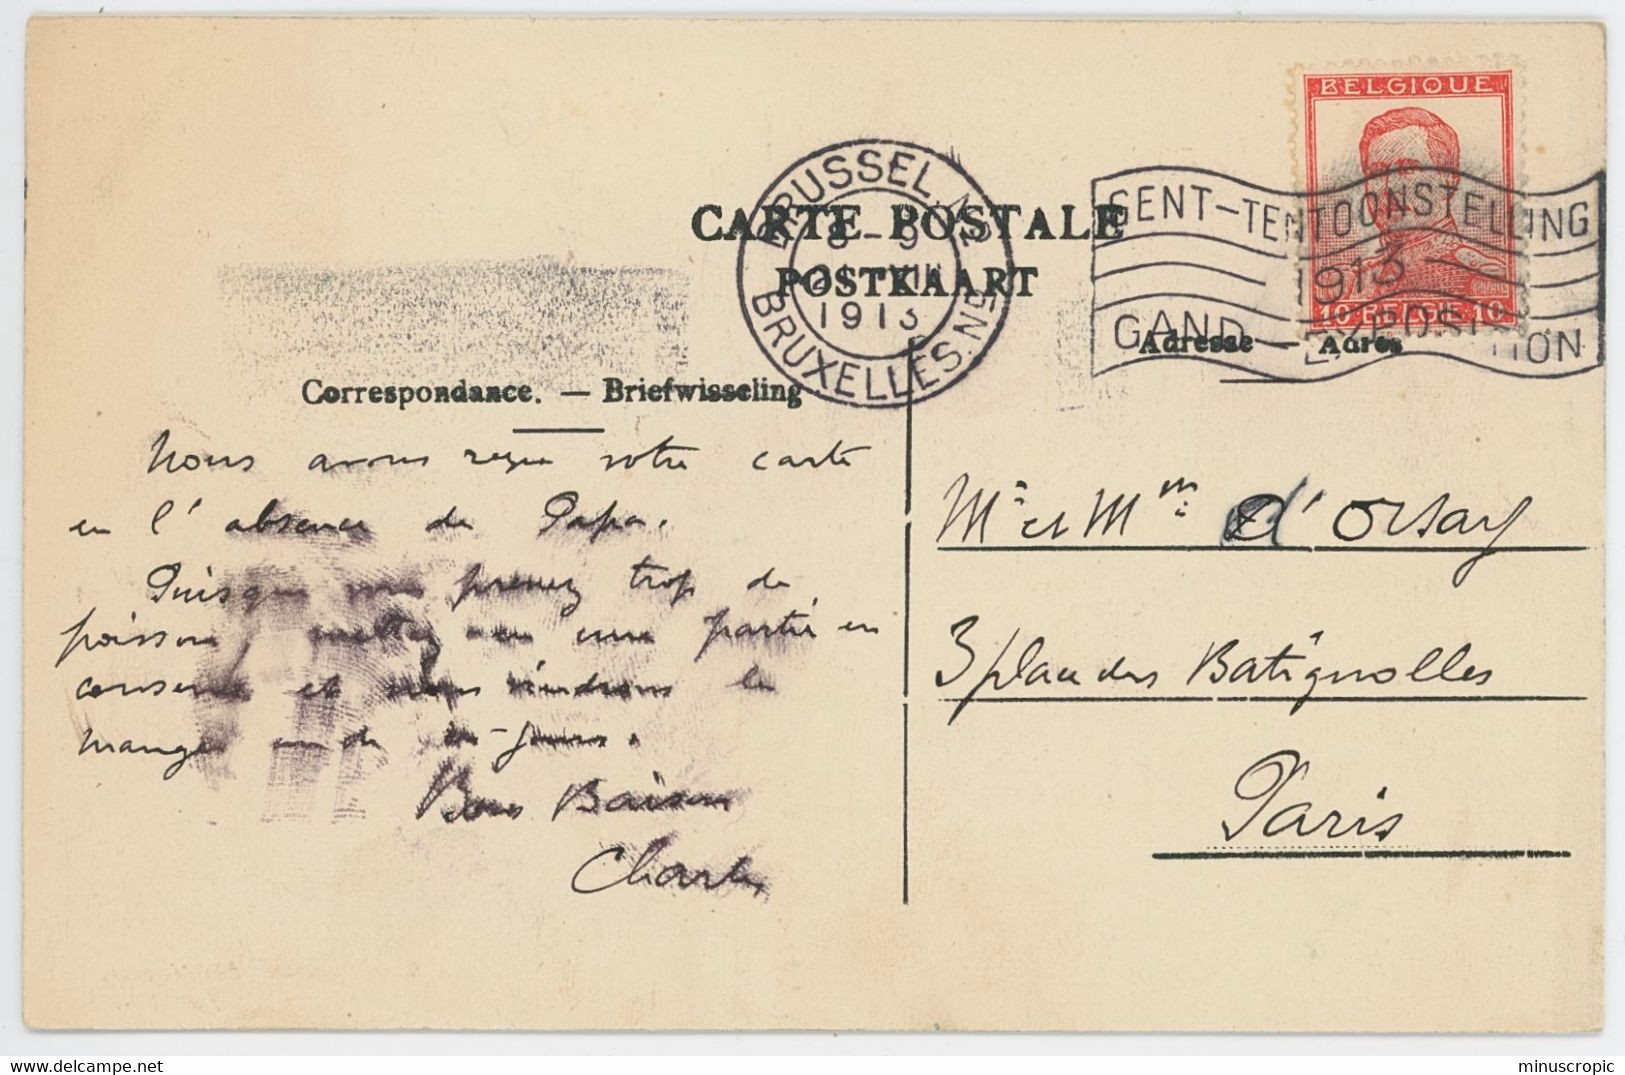 BELGIQUE
BRUSSEL N
8-9
1913
BRUXELLES. ND
GENT-TENTOONSTELLING
1913
GAND-EXPOSITION
10 BELGIË 10
CARTE POSTALE
POSTKAART
Adresse — Adres
Correspondance. — Briefwisseling
Nous avons reçu votre carte
en l'absence de Papa.
Puisque vous prenez trop de
poisson, mettez en une partie en
conserve et nous viendrons le
manger un de
Bons Baisers
Charles
Mr et Mme d'Orsay
3 place des Batignolles
Paris
minuscropic